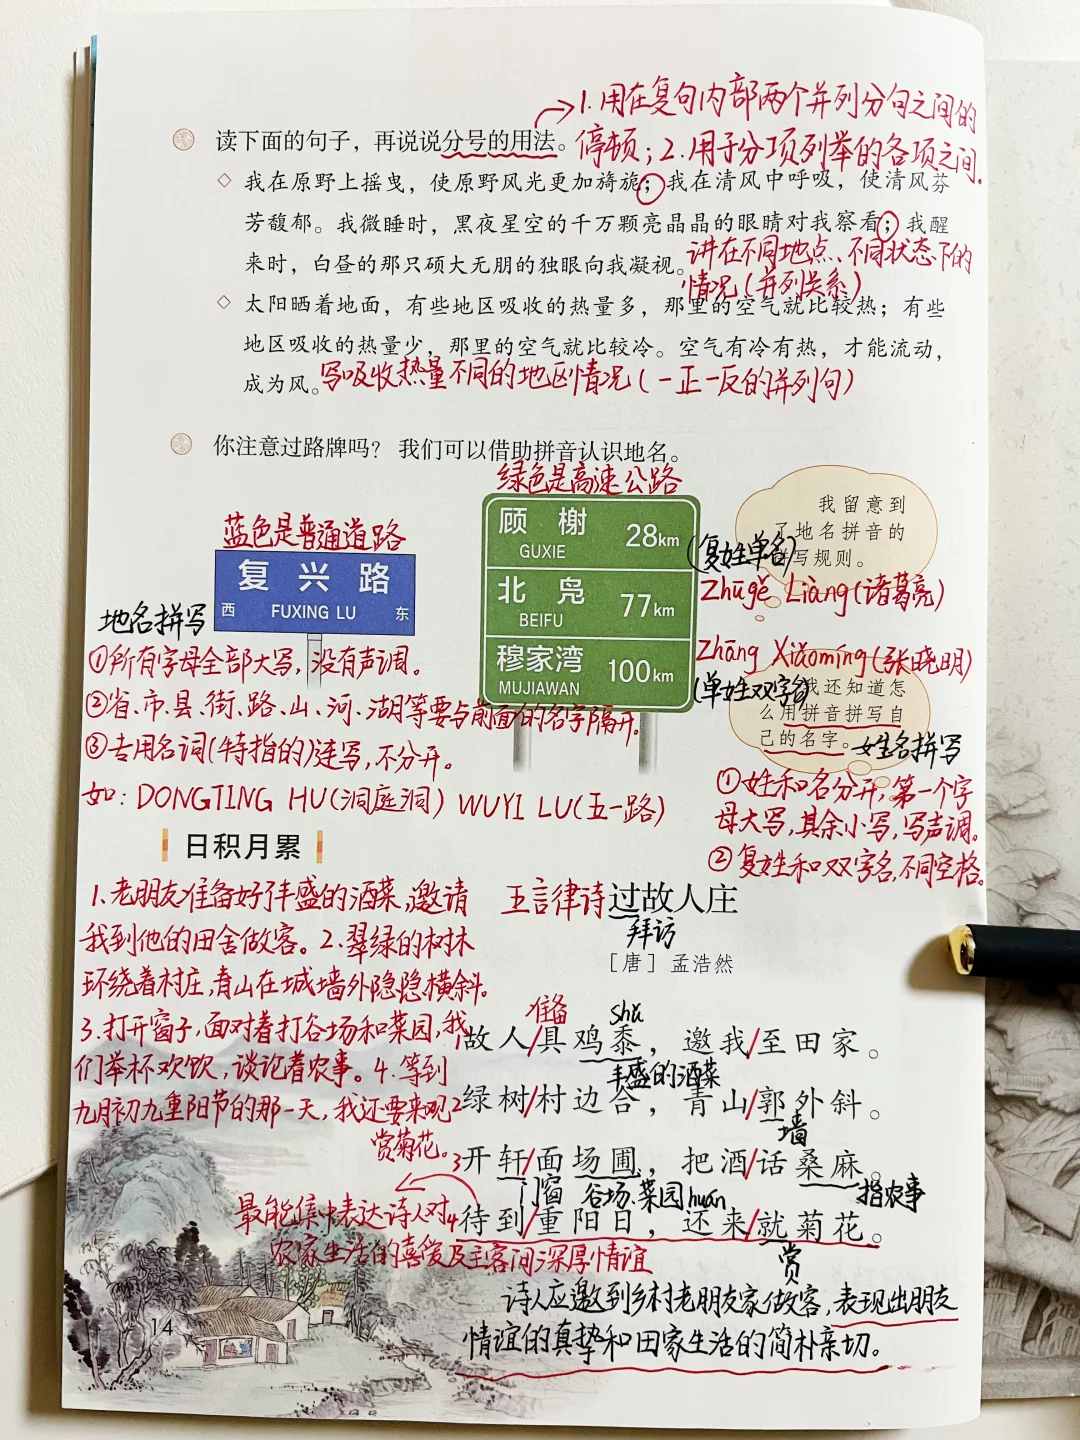 1.用在复句内部两个并列分句之间的
读下面的句子，再说说分号的用法。
停顿；2.用于分项列举的各项之间.
我在原野上摇曳，使原野风光更加旖旎；我在清风中呼吸，使清风芬
芳馥郁。我微睡时，黑夜星空的千万颗亮晶晶的眼睛对我察看；我醒
来时，白昼的那只硕大无朋的独眼向我凝视。
讲在不同地点、不同状态下的
情况(并列关系)
太阳晒着地面，有些地区吸收的热量多，那里的空气就比较热；有些
地区吸收的热量少，那里的空气就比较冷。空气有冷有热，才能流动，
成为风。
写吸收热量不同的地区情况(一正一反的并列句)
你注意过路牌吗？我们可以借助拼音认识地名。
绿色是高速公路
蓝色是普通道路
复兴路
西 FUXING LU 东
顾榭 28km
GUXIE
北凫 77km
BEIFU
穆家湾 100km
MUJIAWAN
我留意到
了地名拼音的
拼写规则。
(复姓单名)
Zhūgě Liàng(诸葛亮)
Zhāng Xiǎomíng(张晓明)
(单姓双字名)
我还知道怎
么用拼音拼写自
己的名字。
姓名拼写
①姓和名分开,第一个字
母大写,其余小写,写声调。
②复姓和双字名,不同空格。
地名拼写
①所有字母全部大写,没有声调。
②省、市、县、街、路、山、河、湖等要与前面的名字隔开.
③专用名词(特指的)连写,不分开。
如：DONGTING HU(洞庭洞) WUYI LU(五一路)
日积月累
1.老朋友准备好丰盛的酒菜,邀请
我到他的田舍做客。2.翠绿的树林
环绕着村庄,青山在城墙外隐隐横斜.
3.打开窗子,面对着打谷场和菜园,我
们举杯欢饮,谈论着农事。4.等到
九月初九重阳节的那一天,我还要来观
赏菊花。
五言律诗 过故人庄
拜访
［唐］孟浩然
准备 shǔ
1故人/具鸡黍，邀我/至田家。
丰盛的酒菜
2绿树/村边合，青山/郭外斜。
墙
3开轩/面场圃，把酒/话桑麻。
门窗 谷场、菜园 huán 指农事
4待到/重阳日，还来/就菊花。
赏
最能集中表达诗人对
农家生活的喜爱及主客间深厚情谊
诗人应邀到乡村老朋友家做客,表现出朋友
情谊的真挚和田家生活的简朴亲切。
14